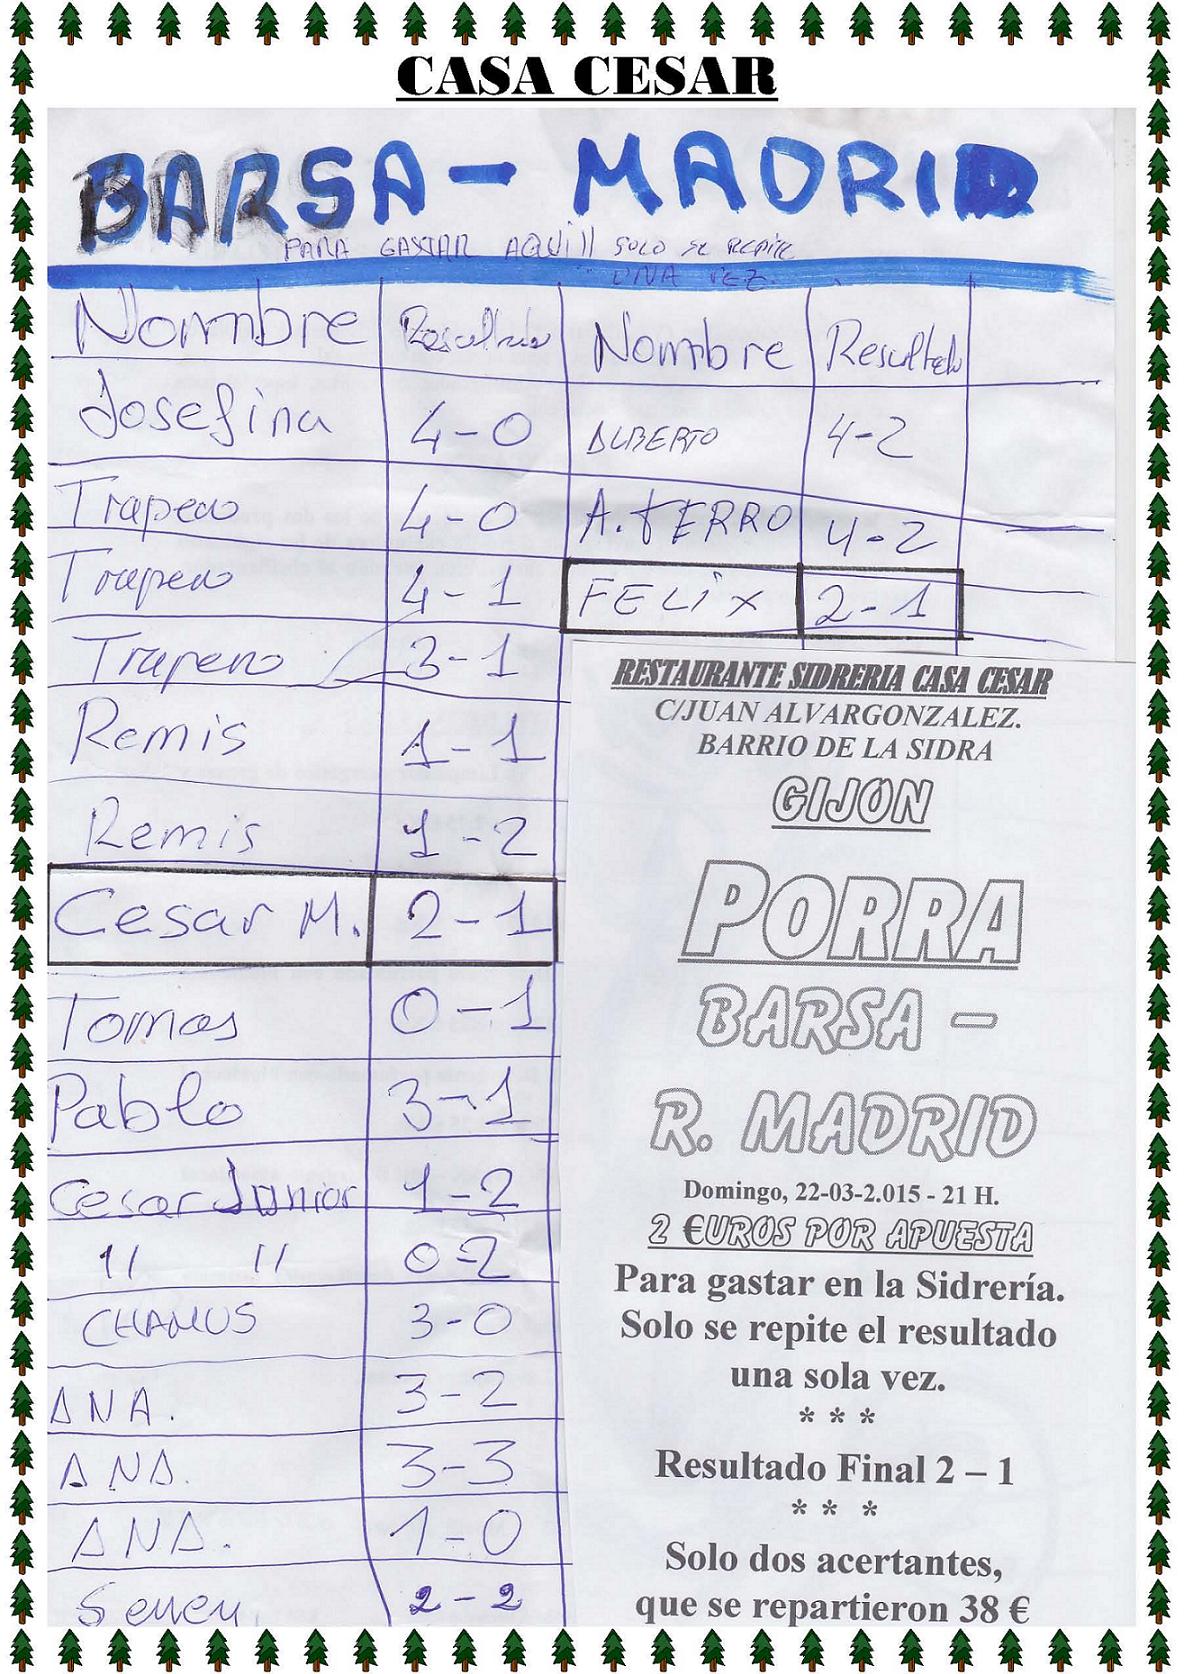 CASA CESAR
BARSA - MADRID
PARA GASTAR AQUI!! SOLO SE REPITE
UNA VEZ.
Nombre Resultado Nombre Resultado
Josefina 4-0 ALBERTO 4-2
Trapero 4-0 A. FERRO 4-2
Trapero 4-1 FELIX 2-1
Trapero 3-1
Remis 1-1
Remis 1-2
Cesar M. 2-1
Tomas 0-1
Pablo 3-1
Cesar Junior 1-2
" " 0-2
CHAMUS 3-0
ANA. 3-2
ANA. 3-3
ANA. 1-0
2-2
RESTAURANTE SIDRERIA CASA CESAR
C/JUAN ALVARGONZALEZ.
BARRIO DE LA SIDRA
GIJON
PORRA
BARSA -
R. MADRID
Domingo, 22-03-2.015 - 21 H.
2 €UROS POR APUESTA
Para gastar en la Sidrería.
Solo se repite el resultado
una sola vez.
* * *
Resultado Final 2 – 1
* * *
Solo dos acertantes,
que se repartieron 38 €